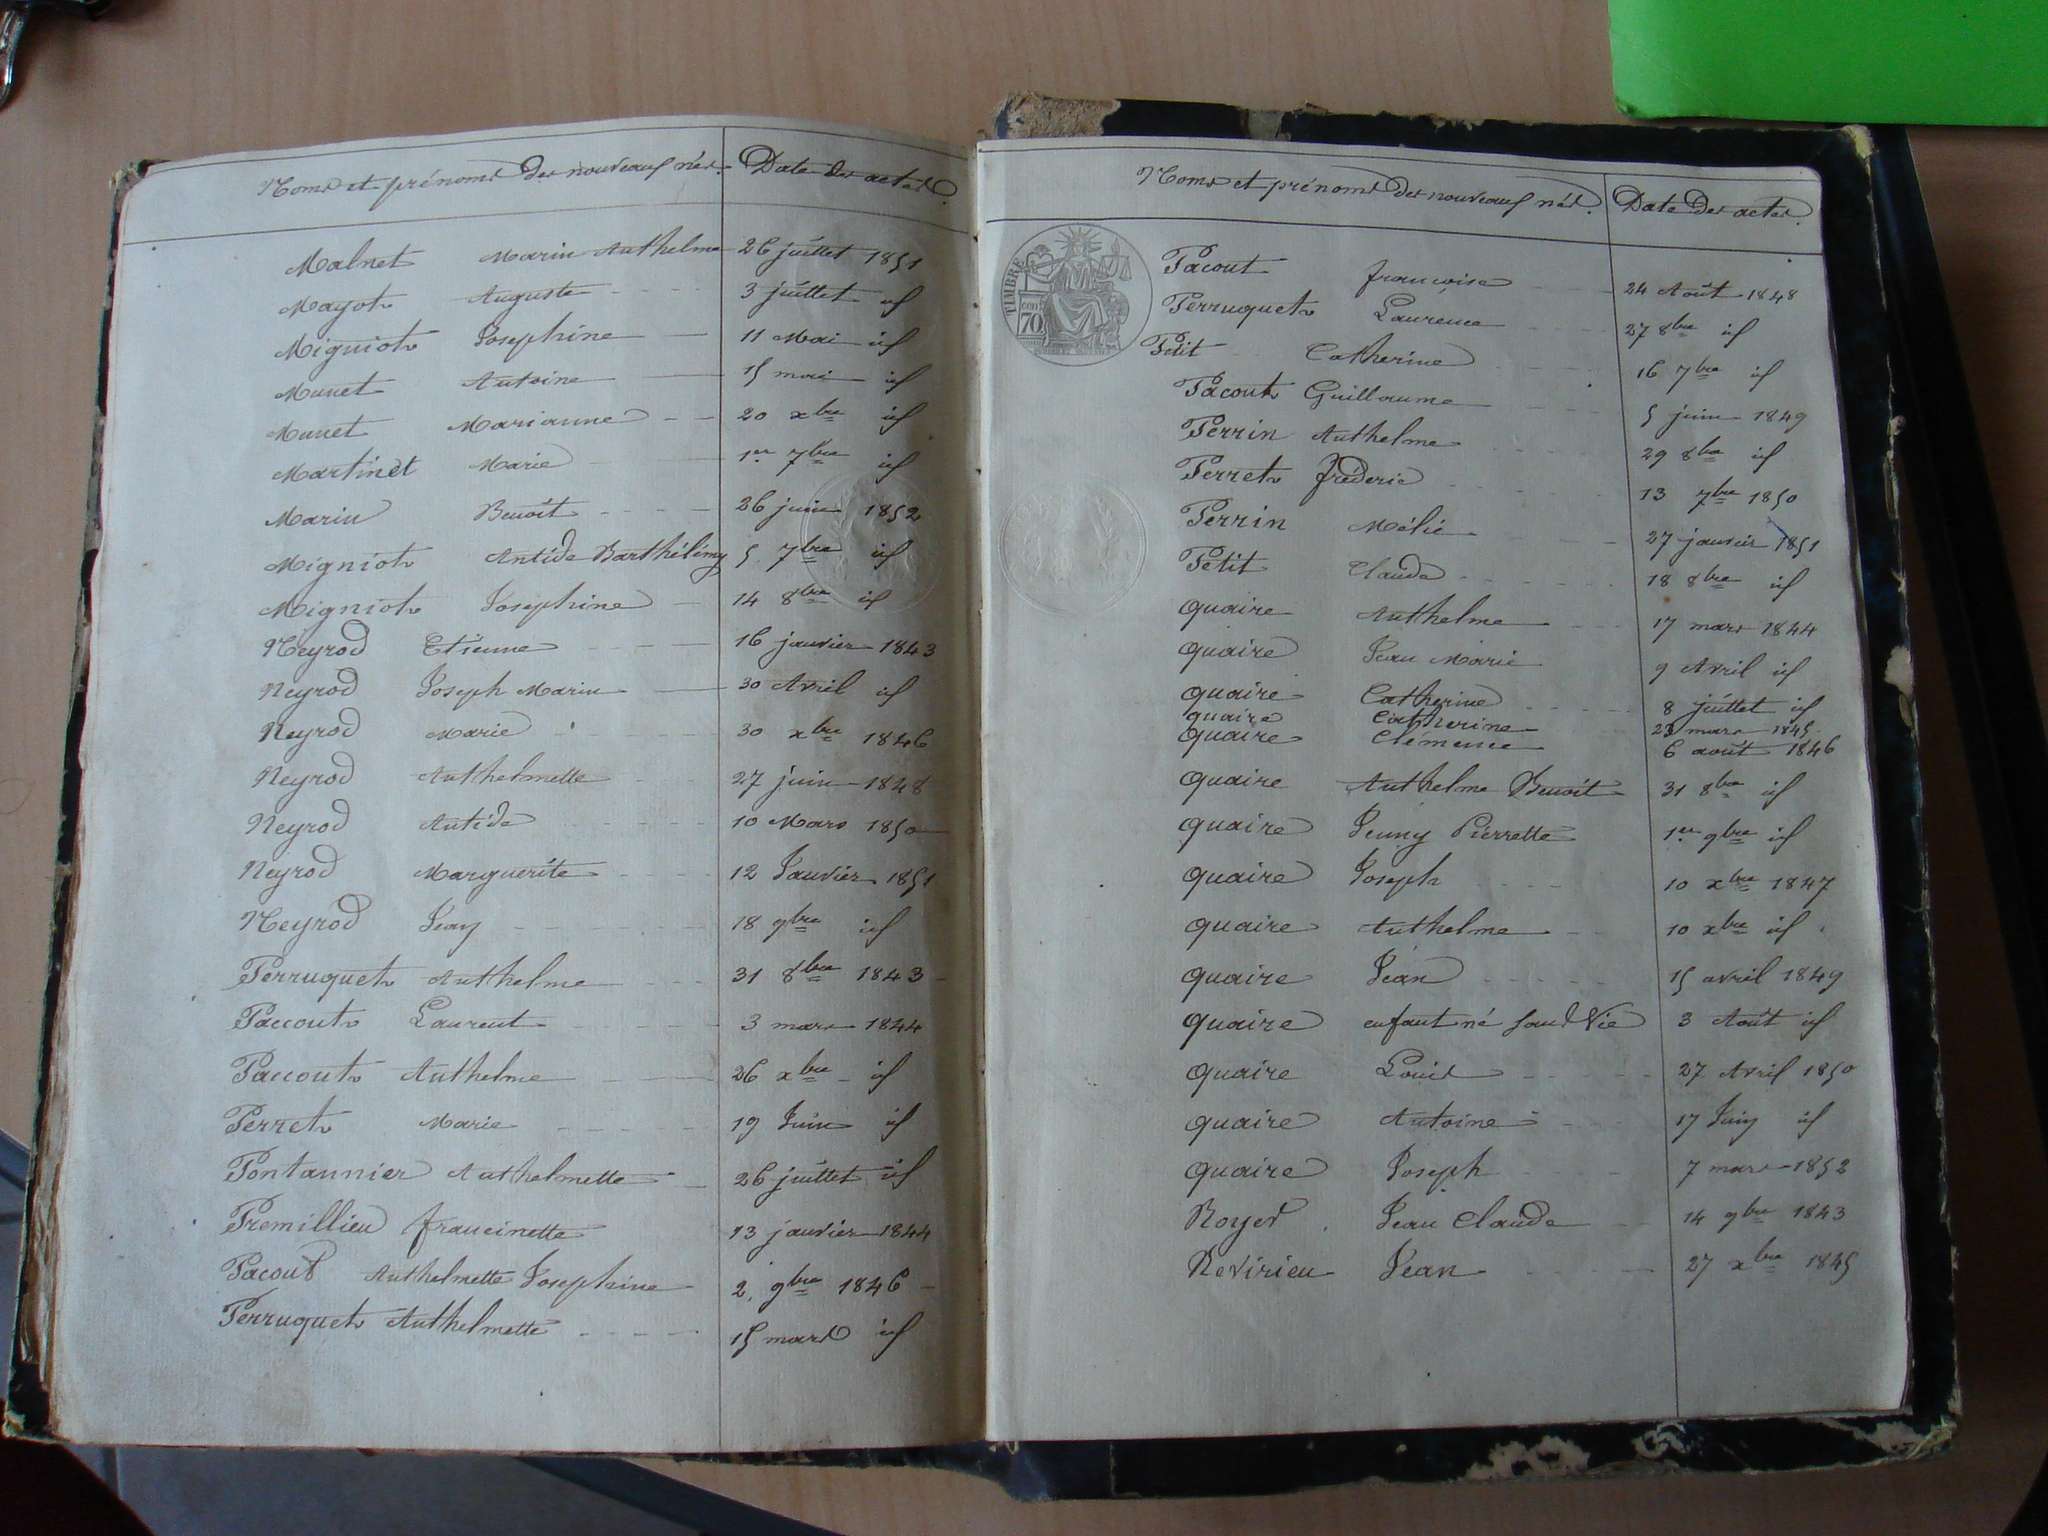 Noms et prénoms des nouveaux nés. Date des actes.
Malnet Marin Anthelme 26 juillet 1851
Mayot Auguste 3 juillet id
Migniot Josephine 11 Mai id
Munet Antoine 15 mai id
Munet Marianne 20 xbre id
Martinet Marie 1er 7bre id
Marin Benoît 26 juin 1852
Migniot Antide Barthélémy 5 7bre id
Migniot Josephine 14 8bre id
Neyrod Etienne 16 janvier 1843
Neyrod Joseph Marin 30 Avril id
Neyrod Marie 30 xbre 1846
Neyrod Anthelmette 27 juin 1848
Neyrod Antide 10 Mars 1850
Neyrod Marguerite 12 Janvier 1851
Neyrod Jeny 18 9bre id
Perruquet Anthelme 31 8bre 1843
Paccout Laurent 3 mars 1844
Paccout Anthelme 26 xbre id
Perret Marie 19 Juin id
Pontannier Anthelmette 26 juillet id
Premillieu francinette 13 janvier 1844
Pacout Anthelmette Josephine 2. 9bre 1846
Perruquet Anthelmette 15 mars id
Noms et prénoms des nouveaux nés. Date des actes.
TIMBRE
70
Pacout francoise 24 Août 1848
Perruquet Laurence 27 8bre id
Petit Catherine 16 7bre id
Pacout Guillaume 5 juin 1849
Perrin Anthelme 29 8bre id
Perret fréderic 13 7bre 1850
Perrin Mélie 27 janvier 1851
Petit Claude 18 8bre id
quaire Anthelme 17 mars 1844
quaire Jean Marie 9 Avril id
quaire Catherine 8 juillet id
quaire Catherine 23 mars 1845
quaire Clémence 6 août 1846
quaire Anthelme Benoit 31 8bre id
quaire Jenny Pierrette 1er 9bre id
quaire Joseph 10 xbre 1847
quaire Anthelme 10 xbre id
quaire Jean 15 avril 1849
quaire enfant né sans Vie 3 Août id
quaire Louis 27 Avril 1850
quaire Antoine 17 Juin id
quaire Joseph 7 mars 1852
Royer Jean Claude 14 9bre 1843
Revirieu Jean 27 xbre 1845